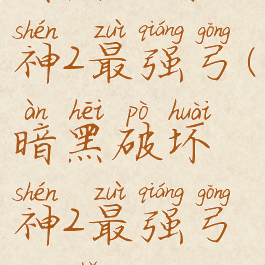 shén zuì qiáng gōng
神2最强弓(
àn hēi pò huài
暗黑破坏
shén zuì qiáng gōng
神2最强弓